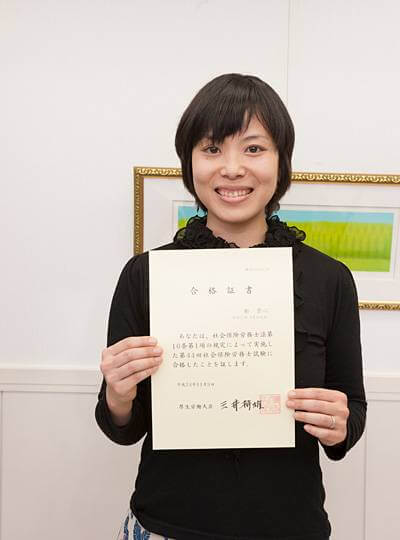 合格証書
あなたは、社会保険労務士法第
10条第1項の規定によって実施し
た第44回社会保険労務士試験に
合格したことを証します。
厚生労働大臣 三井辨雄